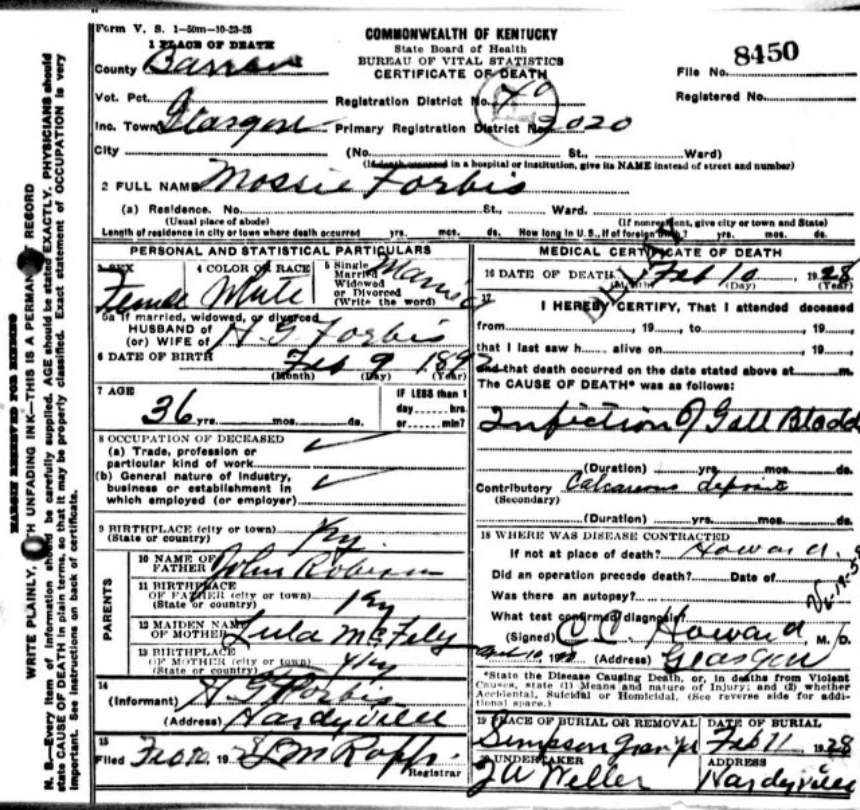 Form V. S. 1-50m-10-23-25
COMMONWEALTH OF KENTUCKY
State Board of Health
BUREAU OF VITAL STATISTICS
CERTIFICATE OF DEATH
1 PLACE OF DEATH
County Barren
File No. 8450
Vot. Pct.
Registration District No. 40
Registered No.
Inc. Town Glasgow Primary Registration District No. 3020
City (No. St., Ward)
(If death occurred in a hospital or institution, give its NAME instead of street and number)
2 FULL NAME Mossie Forbis
(a) Residence. No. St., Ward.
(Usual place of abode) (If nonresident, give city or town and State)
Length of residence in city or town where death occurred yrs. mos. ds. How long in U. S., if of foreign birth? yrs. mos. ds.
PERSONAL AND STATISTICAL PARTICULARS
3 SEX Female
4 COLOR OR RACE White
5 Single Married Widowed or Divorced (Write the word) Married
5a If married, widowed, or divorced
HUSBAND of
(or) WIFE of H G Forbis
6 DATE OF BIRTH Feb 9 1892
(Month) (Day) (Year)
7 AGE 36 yrs. mos. ds.
IF LESS than 1 day hrs. or min?
8 OCCUPATION OF DECEASED
(a) Trade, profession or
particular kind of work
(b) General nature of industry,
business or establishment in
which employed (or employer)
9 BIRTHPLACE (city or town)
(State or country) Ky.
PARENTS
10 NAME OF FATHER John
11 BIRTHPLACE
OF FATHER (city or town)
(State or country) Ky
12 MAIDEN NAME
OF MOTHER Lula
13 BIRTHPLACE
OF MOTHER (city or town)
(State or country) Ky
14
(Informant) H G Forbis
(Address) Hardyville
15
Filed Feb 10, 1928
Registrar
MEDICAL CERTIFICATE OF DEATH
16 DATE OF DEATH Feb 10 1928
(Month) (Day) (Year)
17
I HEREBY CERTIFY, That I attended deceased
from , 19 , to , 19 ,
that I last saw h alive on , 19 ,
and that death occurred on the date stated above at m.
The CAUSE OF DEATH* was as follows:
Infiction of Gall Bladd
(Duration) yrs. mos. ds.
Contributory Calcareous deposits
(Secondary)
(Duration) yrs. mos. ds.
18 WHERE WAS DISEASE CONTRACTED
If not at place of death? Howard
Did an operation precede death? Date of
Was there an autopsy?
What test confirmed diagnosis?
(Signed) C.C. Howard, M. D.
(Address) Glasgow
*State the Disease Causing Death, or, in deaths from Violent
Causes, state (1) Means and nature of Injury; and (2) whether
Accidental, Suicidal or Homicidal. (See reverse side for addi-
tional space.)
19 PLACE OF BURIAL OR REMOVAL DATE OF BURIAL
Simpson Feb 11 1928
20 UNDERTAKER ADDRESS
Weller Hardyville
MARGIN RESERVED FOR BINDING
WRITE PLAINLY, WITH UNFADING INK—THIS IS A PERMANENT RECORD
N. B.—Every item of information should be carefully supplied. AGE should be stated EXACTLY. PHYSICIANS should
state CAUSE OF DEATH in plain terms, so that it may be properly classified. Exact statement of OCCUPATION is very
important. See instructions on back of certificate.